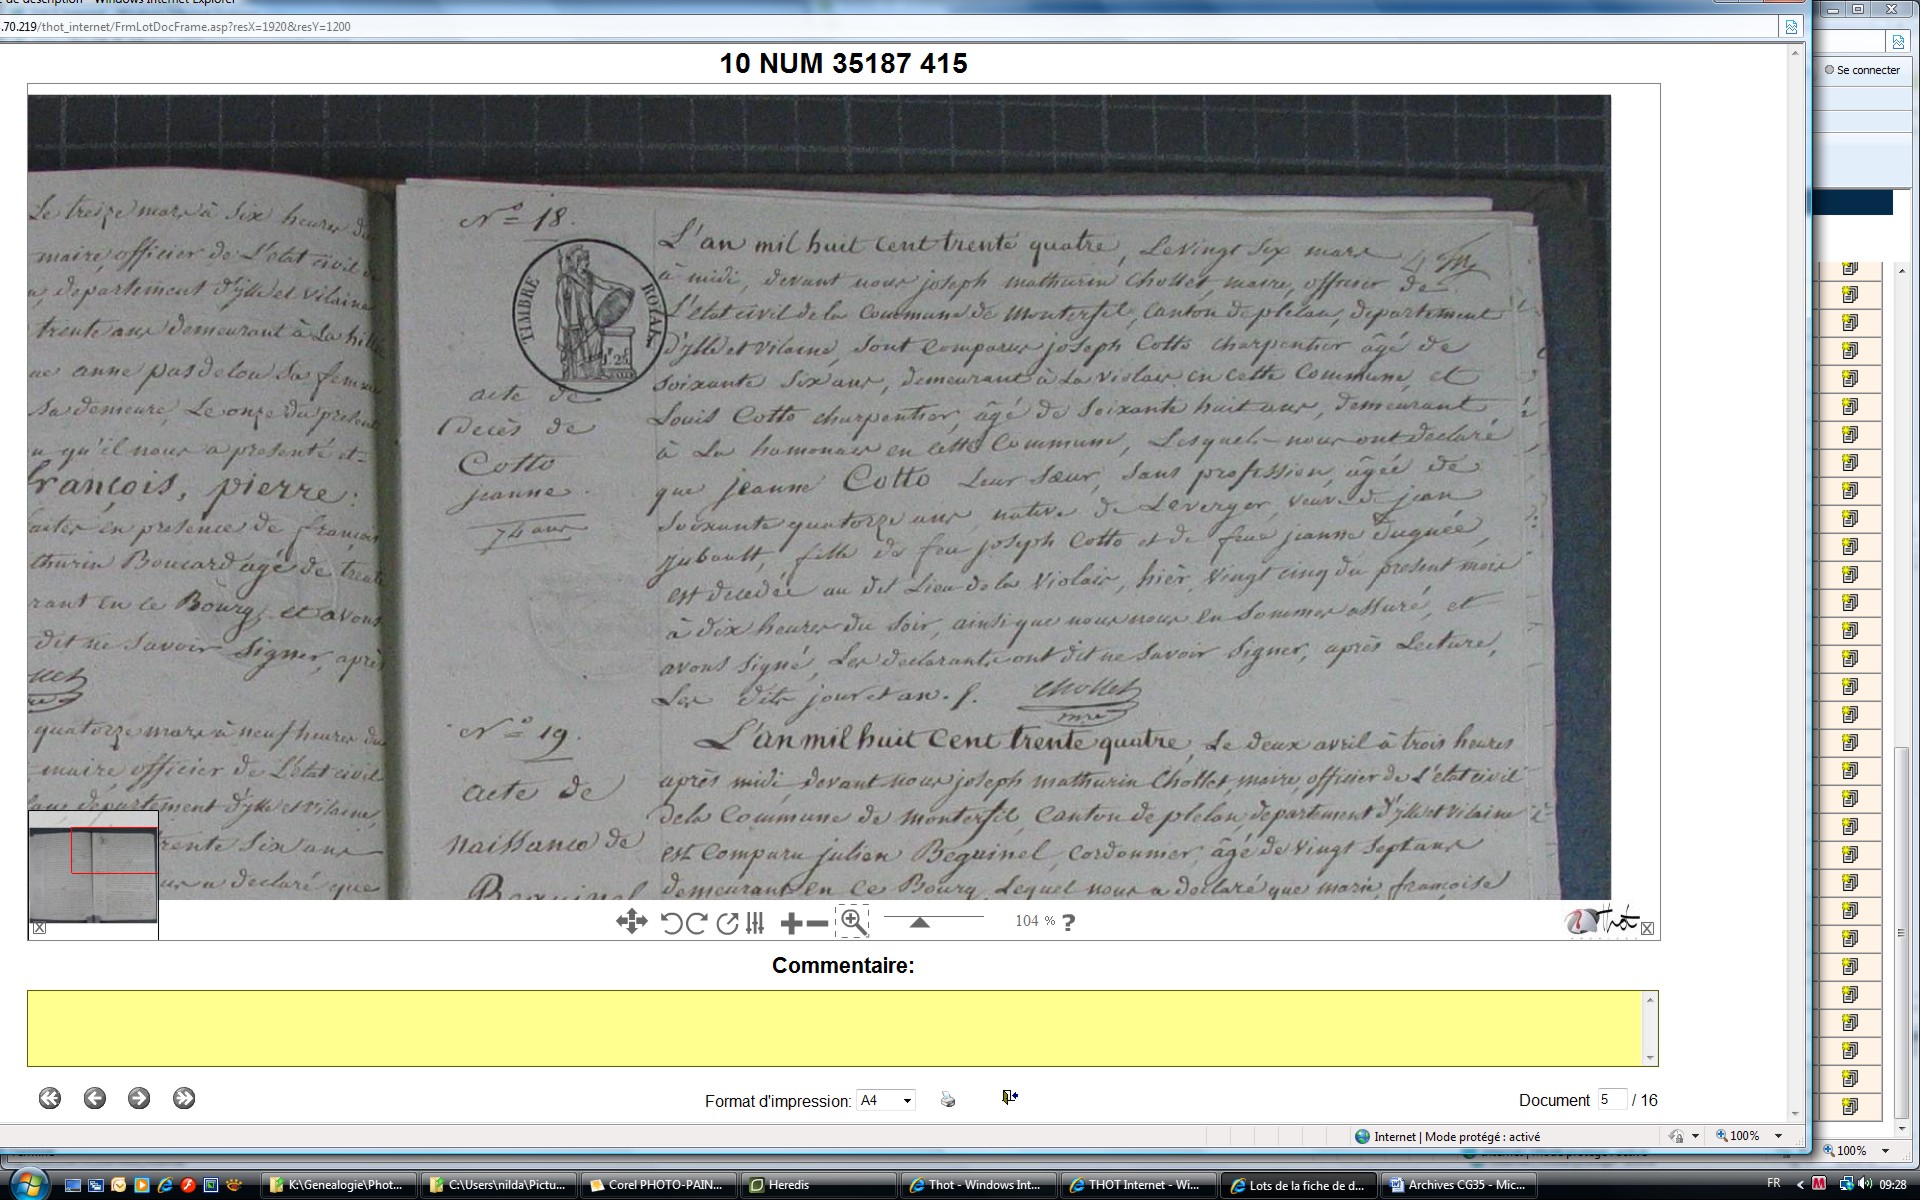 de description - Windows Internet Explorer
.70.219/thot_internet/FrmLotDocFrame.asp?resX=1920&resY=1200
Se connecter
10 NUM 35187 415
Le treize mars à six heures du
maire, officier de L'état civil
departement d'ylle et vilaine
trente ans demeurant à La
anne pasdelou sa femme
sa demeure, Le onze du present
qu'il nous a presenté et
françois, pierre.
en presence de françois
thurin Boucard agé de trente
en ce Bourg, et avons
dit ne savoir signer, après
quatorze mars à neuf heures du
maire officier de L'état civil
departement d'ylle et vilaine,
trente six ans
a declaré que
N° 18.
TIMBRE ROYAL
1F 25C
acte de
Décès de
Cotto
jeanne.
74 ans
L'an mil huit cent trente quatre, Le vingt six mars
à midi, devant nous joseph mathurin Chollet, maire, officier de
L'état civil de la Commune de monterfil, Canton de plélan, departement
d'ylle et vilaine, sont comparus joseph Cotto charpentier âgé de
soixante six ans, demeurant à La violais en cette Commune, et
Louis Cotto charpentier, âgé de soixante huit ans, demeurant
à La hamonais en cette Commune, Lesquels nous ont declaré
que jeanne Cotto Leur sœur, sans profession, âgée de
soixante quatorze ans, native de Leverger, veuve de jean
jubault, fille de feu joseph Cotto et de feue jeanne duguée,
est decedée au dit Lieu de la violais, hier vingt cinq du present mois
à dix heures du soir, ainsi que nous nous en sommes assuré, et
avons signé, Les declarants ont dit ne savoir signer, après Lecture,
Les dits jour et an. f. Chollet
mre
N° 19.
acte de
naissance de
Beguinel
L'an mil huit cent trente quatre, Le deux avril à trois heures
après midi, devant nous joseph mathurin Chollet, maire, officier de L'état civil
de la Commune de monterfil, Canton de plélan, departement d'ylle et vilaine
est Comparu julien Beguinel, cordonnier, âgé de vingt sept ans
demeurant en ce Bourg, Lequel nous a declaré que marie, françoise
104 % ?
Thot
Commentaire:
Format d'impression: A4
Document 5 / 16
Internet | Mode protégé : activé
100%
100%
K:\Genealogie\Phot...
C:\Users\nilda\Pictu...
Corel PHOTO-PAIN...
Heredis
Thot - Windows Int...
THOT Internet - Wi...
Lots de la fiche de d...
Archives CG35 - Mic...
FR
09:28